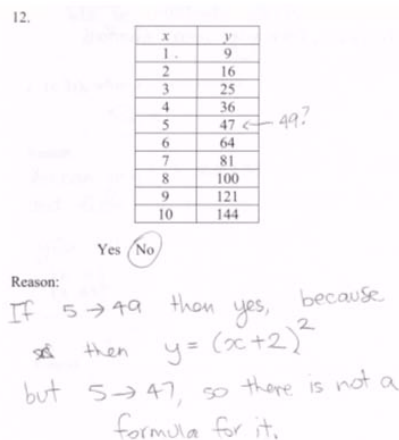 12.
x y
1 9
2 16
3 25
4 36
5 47 ← 49?
6 64
7 81
8 100
9 121
10 144
Yes No
Reason:
If 5 → 49 then yes, because
then y = (x+2)²
but 5 → 47, so there is not a
formula for it.